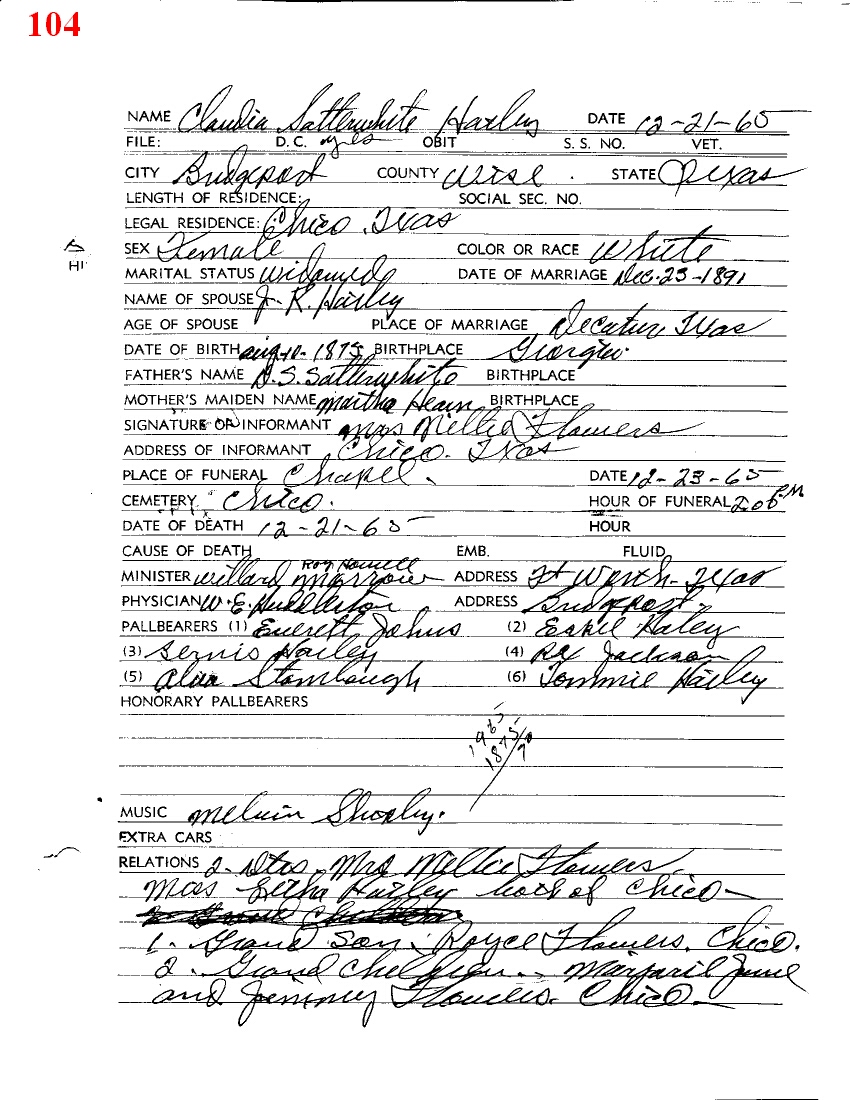 104
NAME Claudia Satterwhite Harley DATE 12-21-65
FILE: D.C. yes OBIT S. S. NO. VET.
CITY Bridgeport COUNTY Wise . STATE Texas
LENGTH OF RESIDENCE: SOCIAL SEC. NO.
LEGAL RESIDENCE: Chico, Texas
SEX Female COLOR OR RACE White
HI
MARITAL STATUS Widowed DATE OF MARRIAGE Dec. 23-1891
NAME OF SPOUSE J. R. Harley
AGE OF SPOUSE PLACE OF MARRIAGE Decatur Texas
DATE OF BIRTH aug. 10. 1875 BIRTHPLACE Georgia.
FATHER'S NAME D.S. Satterwhite BIRTHPLACE
MOTHER'S MAIDEN NAME Martha Hearn BIRTHPLACE
SIGNATURE OF INFORMANT Mrs Mellie Flowers
ADDRESS OF INFORMANT Chico. Texas
PLACE OF FUNERAL Chapel. DATE 12-23-65
CEMETERY Chico. HOUR OF FUNERAL 2:00 PM
DATE OF DEATH 12-21-65 HOUR
CAUSE OF DEATH EMB. FLUID
Roy Howell
MINISTER Willard Morrow ADDRESS Ft Worth-Texas
PHYSICIAN W.E. Huddleston ADDRESS Bridgeport,
PALLBEARERS (1) Everett Johns (2)
(3) Harley (4) Jackson
(5) Alva Stambaugh (6) Tommie Harley
HONORARY PALLBEARERS
1965
1875
90
MUSIC Melvin Shoxley.
EXTRA CARS
RELATIONS 2- Dtrs, Mrs Mellie Flowers
Mrs Letha Harley both of Chico-
1. Grand Son. Royce Flowers. Chico.
2. Grand Children. June
and Jimmy Flowers. Chico-